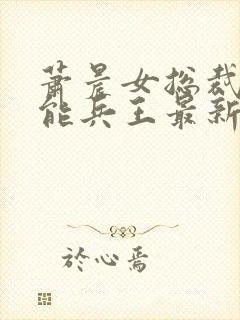 萧晨女总裁
能兵王最新
於心焉